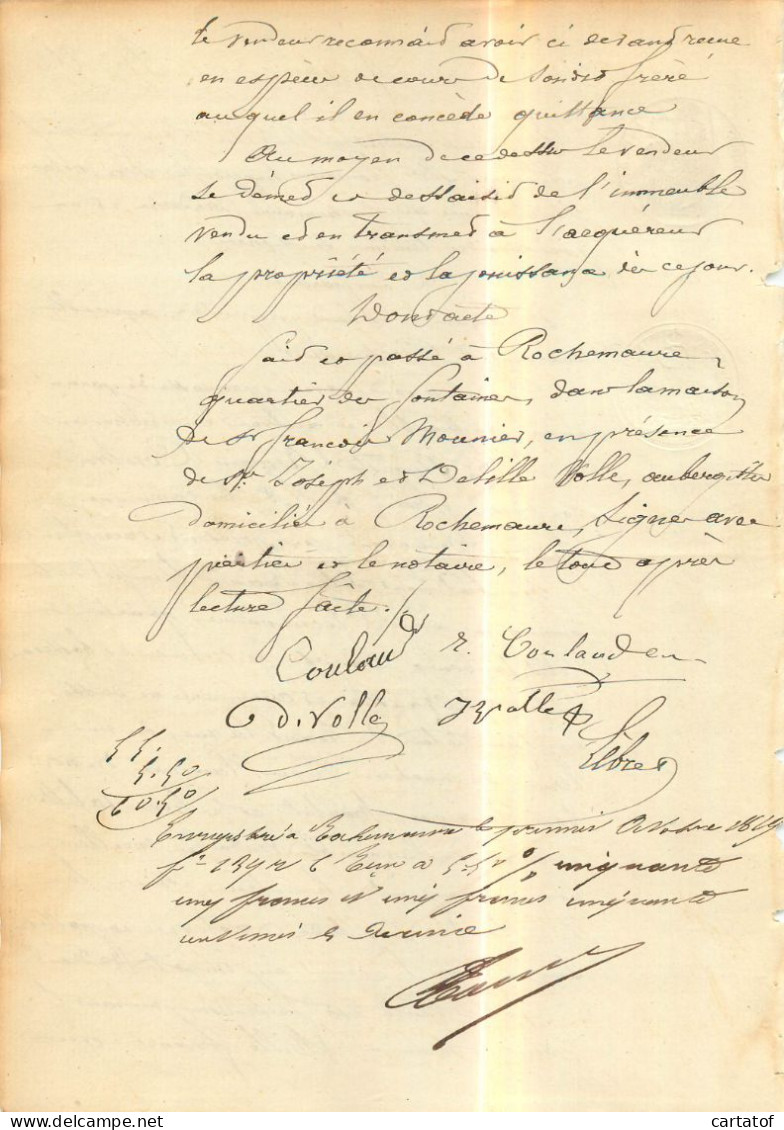 le vendeur reconnaid avoir ci devand recue
en espèces de cours de sondid frère
auquel il en concède quittance
Au moyen de ce dessus le vendeur
se démed et dessaisid de l'immeuble
vendu et en transmed à l'acquéreur
la propriété et la jouissance dès ce jour.
Dont acte
Faid et passé à Rochemaure,
quartier des fontaines, dans la maison
de Sr françois Mounier, en présence
de Mrs Joseph et Delille Volle, aubergistes
domiciliés à Rochemaure, signés avec
parties et le notaire, le toud après
lecture faite./.
Couland r. Coulauden
D. Volle J Volle
Fibre
55.
5.50
60.50
Enregistré à Rochemaure le premier Octobre 18
f° 139 r 6 Reçu à 5.50 % cinquante
cinq francs et cinq francs cinquante
centimes de decime